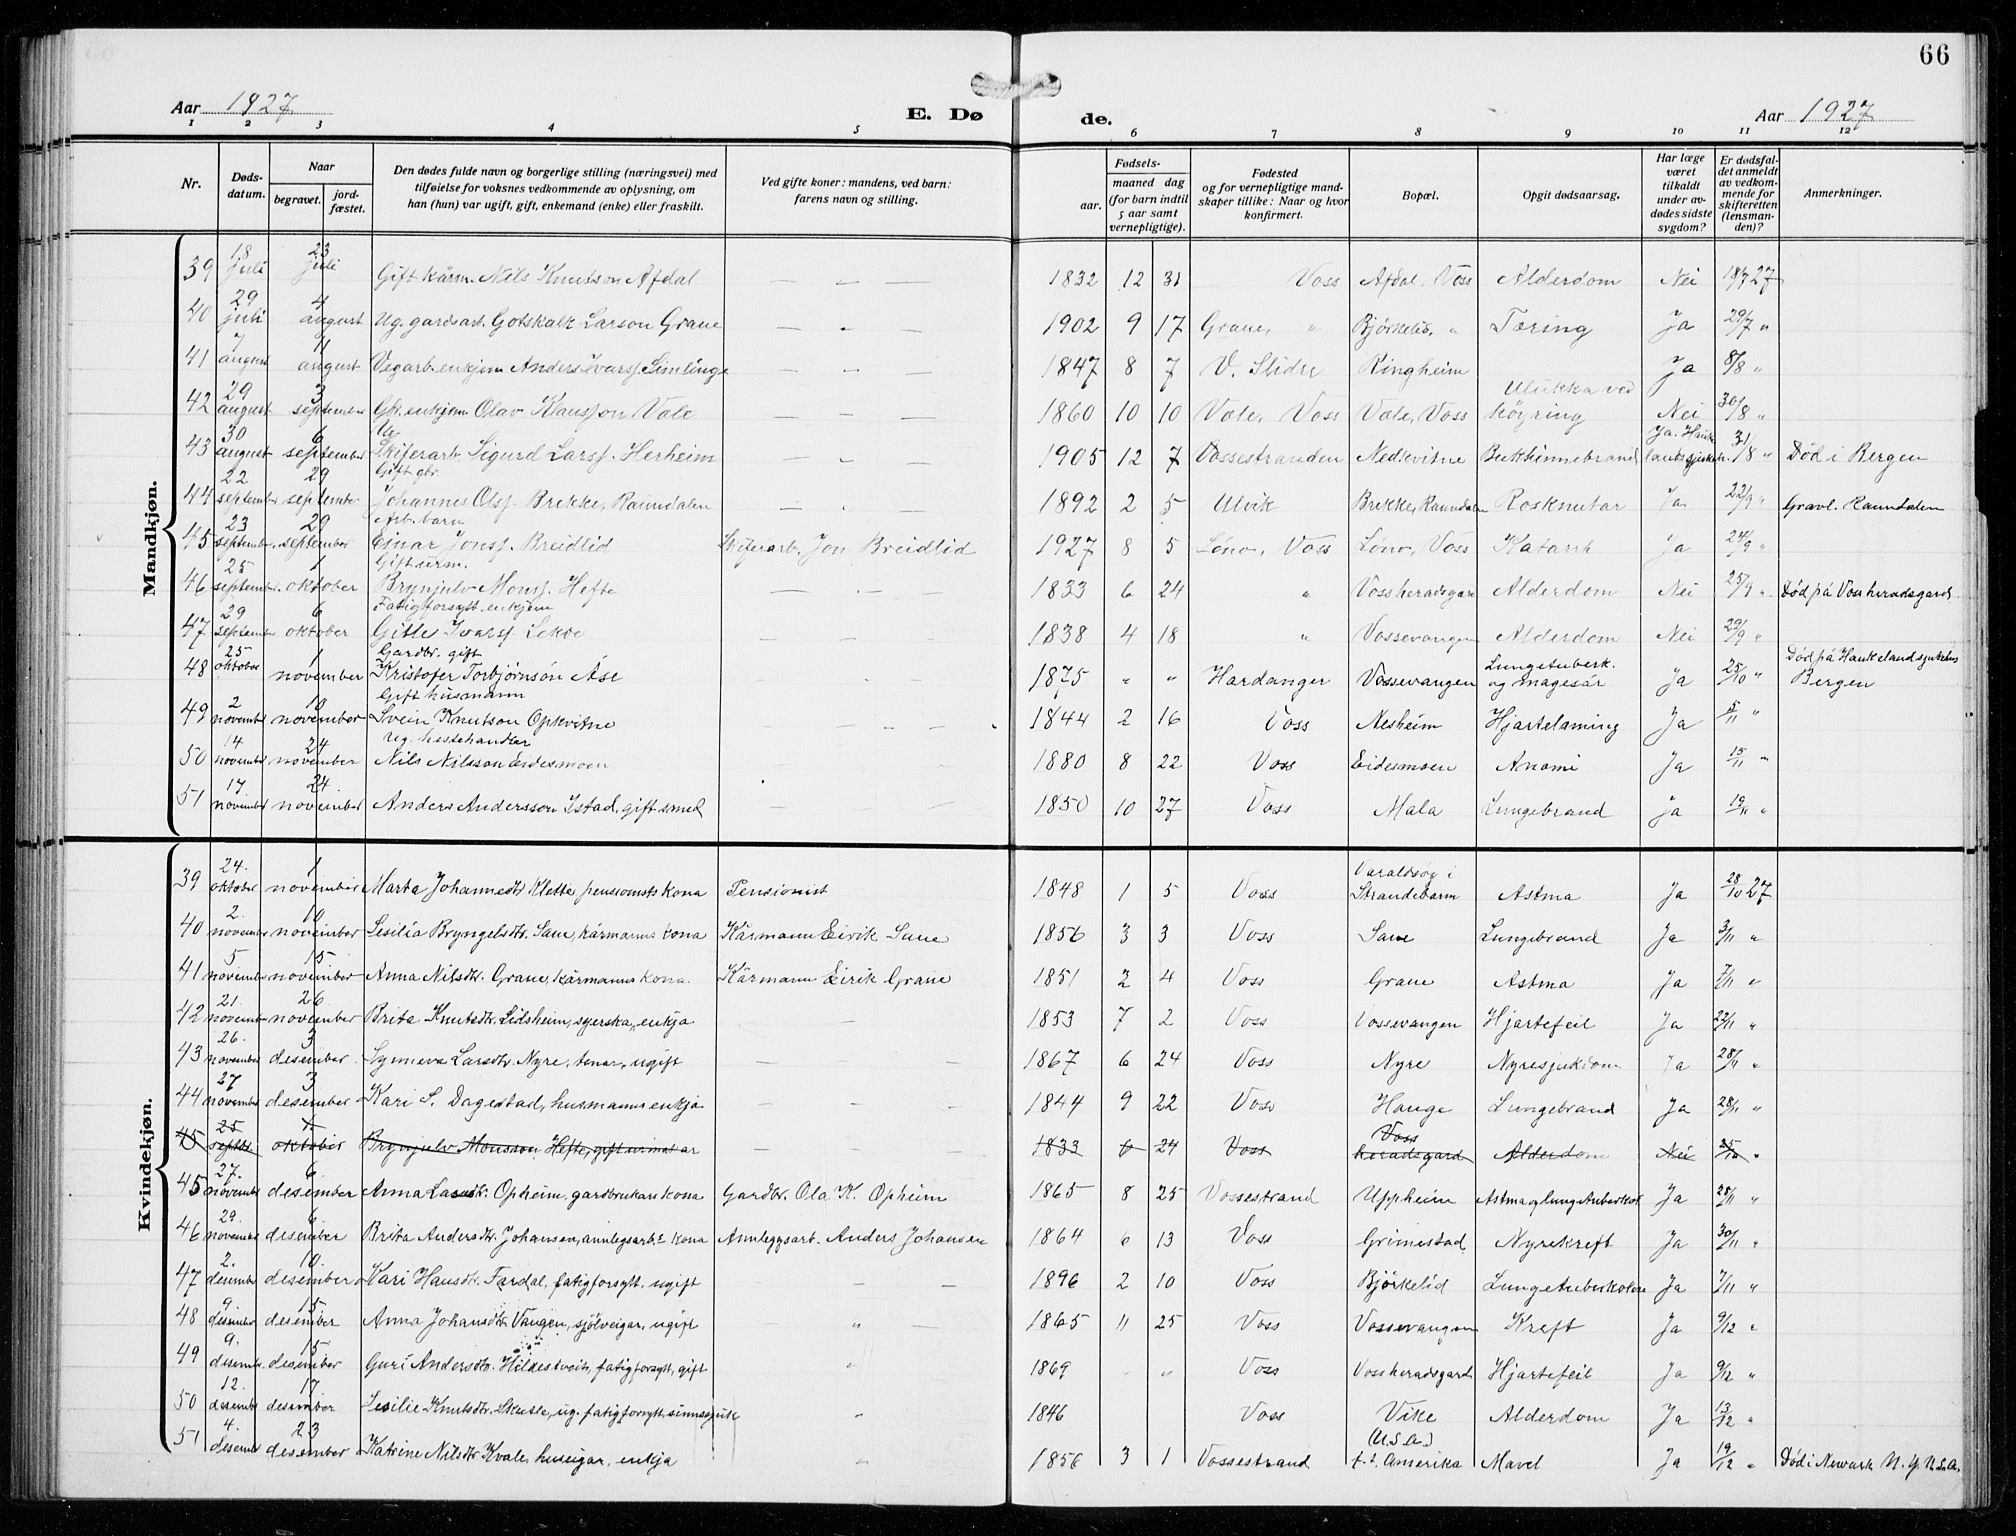 66
Aar 1927
E. Dø
de.
Aar 1927
1 2 3 4 5 6 7 8 9 10 11 12
Nr.
Døds-
datum.
Naar
begravet.
jord-
fæstet.
Den dødes fulde navn og borgerlige stilling (næringsvei) med
tilføielse for voksnes vedkommende av oplysning, om
han (hun) var ugift, gift, enkemand (enke) eller fraskilt.
Ved gifte koner: mandens, ved barn:
farens navn og stilling.
Fødsels-
aar.
maaned dag
(for barn indtil
5 aar samt
vernepligtige).
Fødested
og for vernepligtige mand-
skaper tillike: Naar og hvor
konfirmert.
Bopæl.
Opgit dødsaarsag.
Har læge
været
tilkaldt
under av-
dødes sidste
sygdom?
Er dødsfal-
det anmeldt
av vedkom-
mende for
skifteretten
(lensman-
den)?
Anmerkninger.
Mandkjøn.
39 18 juli 23 juli Gift kårm. Nils Knutson Afdal — — — 1832 12 31 Voss Afdal, Voss Alderdom Nei 18/7 27
40 29 juli 4 august Ug. gardsarb. Gotskalk Larson Grane — — — 1902 9 17 Grane, " Bjørkelid, " Tæring Ja 29/7 "
41 7 august 11 august Vegarb. enkjem. Anders Ivarss. — — — 1847 8 7 V. Slidre Ringheim Ja 8/8 "
42 29 august 3 september Gb. enkjem Olav Klausson Vale — — — 1860 10 10 Væle, Voss Væle, Voss Ulukka ved køyring Nei 30/8 "
43 30 august 6 september Ug. Skiferarb. Sigurd Larss. Herheim — — — 1905 12 7 Vossestranden Nedkvitne Bukhinnebrand Ja. Haukelandssjukeh. 31/8 " Død i Bergen
44 22 september 29 september Gift gbr. Johannes Olss. Brekke, Raundalen — — — 1892 2 5 Ulvik Brekke, Raundalen Rosknutar Ja 22/9 " Gravl. Raundalen
45 23 september 29 september Arb. barn Einar Jonss. Breidlid Skiferarb. Jon Breidlid 1927 8 5 Løno, Voss Løno, Voss Katarrh Ja 24/9 "
46 25 september 1 oktober Gift urm. Brynjulv Monss. Hefte — — — 1833 6 24 " Vossheradsgard Alderdom Nei 25/9 " Død på Vossheradsgard.
47 29 september 6 oktober Fatigforsytt. enkjem Gitle Ivarss. Lekve — — — 1838 4 18 " Vossevangen Alderdom Nei 29/9 "
48 25 oktober 1 november Gardbr. gift Kristofer Torbjørnson Åse — — — 1875 " " Hardanger Vossevangen Lungetuberk. og magesår Ja 25/10 " Død på Haukelandsjukehus Bergen
49 2 november 10 november Gift husmann Svein Knutson Opkvitne — — — 1844 2 16 Voss Nesheim Hjartelaming Ja 5/11 "
50 14 november 24 november Ug. hestehandlar Nils Nilsson Eidesmoen — — — 1880 8 22 Voss Eidesmoen Anæmi Ja 15/11 "
51 17. november 24. november Anders Andersson Istad, gift smed — — — 1850 10 27 Voss Mala Lungebrand Ja 19/11 "
Kvindekjøn.
39 24. oktober 1 november Marta Johannesdtr. Klette, pensionists kona Pensionist 1848 1 5 Voss Varaldsøy i Strandebarm Astma Ja 28/10 27
40 2. november 10 november Sesilia Bryngelsdtr. Sane, kårmanns kona Kårmann Eirik Sane 1856 3 3 Voss Sane Lungebrand Ja 3/11 "
41 5 november 15 november Anna Nilsdtr. Grane, kårmanns kona. Kårmann Eirik Grane 1851 2 4 Voss Grane Astma Ja 7/11 "
42 21. november 26 november Brita Knutsdtr. Lidsheim, syerska, enkja — — 1853 7 2 Voss Vossevangen Hjartefeil Ja 22/11 "
43 26. november 3 desember Synneva Larsdtr. Nyre, tenar, ugift — — — 1867 6 24 Voss Nyre Nyresjukdom Ja 28/11 "
44 27 november 3 desember Kari S. Dagestad, husmanns enkja — — — 1844 9 22 Voss Hauge Lungebrand Ja 28/11 "
45 25 septbr 1 oktober Brynjulv Monsson Hefte, gift urmakar — — — 1833 6 24 Voss Voss heradsgard Alderdom Nei 25/10 "
45 27. november 6 desember Anna Larsdtr. Opheim, gardbrukars kona Gardbr. Ola K. Opheim 1865 8 25 Vossestrand Uppheim Astma og lungetuberkol. Ja 28/11 "
46 29. november 6. desember Brita Andersdtr. Johansen, annlegsarb.s kona Annleggsarb. Anders Johansen 1864 6 13 Voss Grimestad Nyrekreft Ja 30/11 "
47 2. desember 10. desember Kari Hansdtr. Fardal, fatigforsytt, ugift — — — 1896 2 10 Voss Bjørkelid Lungetuberkolose Ja 7/11 "
48 9 desember 15 desember Anna Johansdtr. Vangen, sjølveigar, ugift — " — 1865 11 25 Voss Vossevangen Kreft Ja 9/12 "
49 9. desember 15 desember Guri Andersdtr. Hildestveit, fatigforsytt, gift " 1869 " " Voss Vossheradsgard Hjartefeil Ja 9/12 "
50 12. desember 17 desember Sesilie Knutsdtr. Skutle, ug. fatigforsytt, sinnssjuk " 1846 Voss Vike Alderdom Ja 13/12 "
51 4. desember 23 desember Katrine Nilsdtr. Kvale, huseigar, enkja " 1856 3 1 Vossestrand (U.S.A.) f.t. Amerika Ja 19/12 " Død i Newark N.Y. U.S.A.